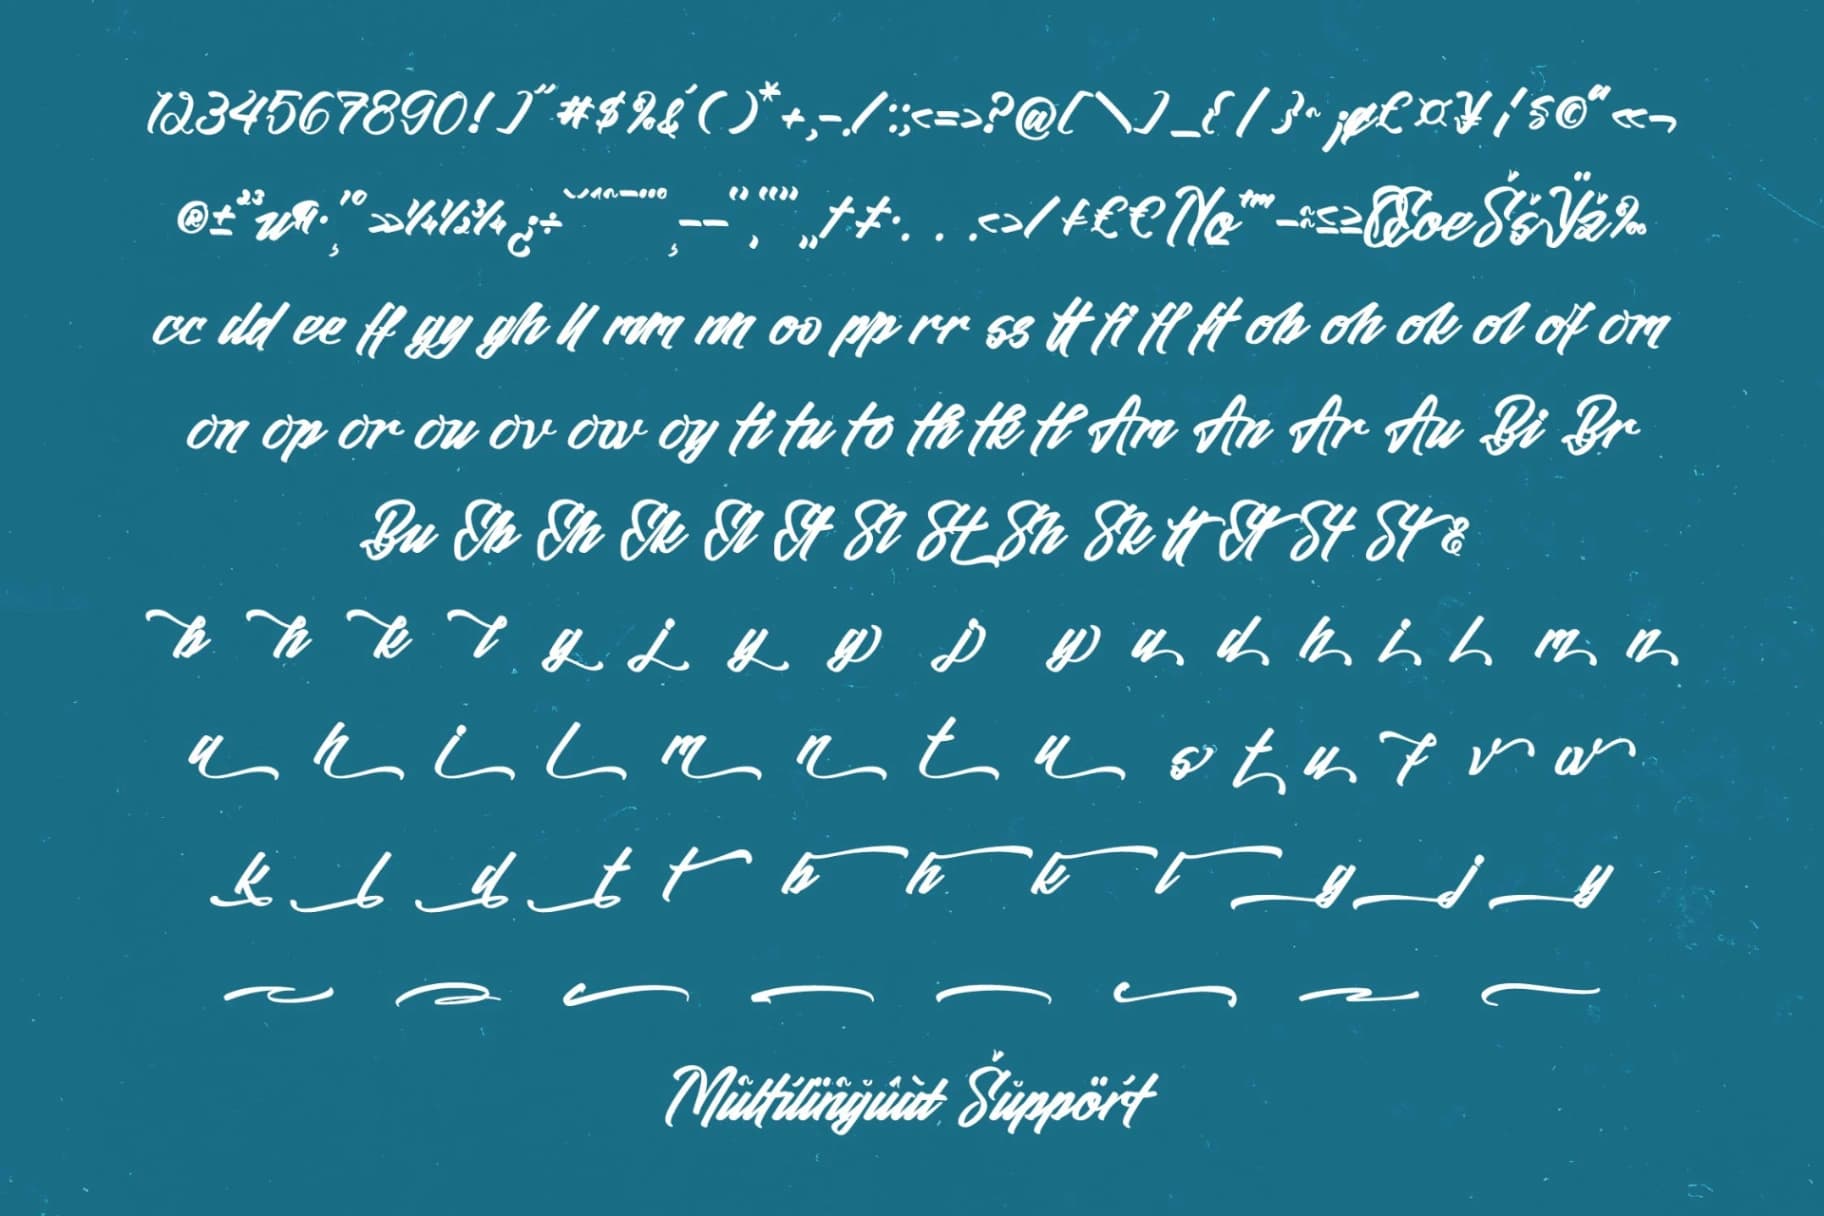 1234567890!]"#$%&´()*+,-./:;<=>?@[\]_{/}~¡¢£¤¥¦§©“«¬
®±²³µ¶·¸¹⁰»¼½¾¿÷˘ˇ^~¯˙¨˚¸–—‘’‚“”„†‡•...<>/₣£€№™−≈≤≥ŒœŠšŸž‰
cc dd ee ff gg gh ll mm nn oo pp rr ss tt fi fl ft ob oh ok ol of om
on op or ou ov ow oy ti tu to th tk tl Am An Ar Au Bi Br
Bu Eb Eh Ek El Et Sl St Sh Sk tt Et St St &
b h k l g j y g j y a d h i l m n
a h i l m n t u s t u t v w
k l d t t b h k l g j y
Mûltílïñgůâť Šůppörť